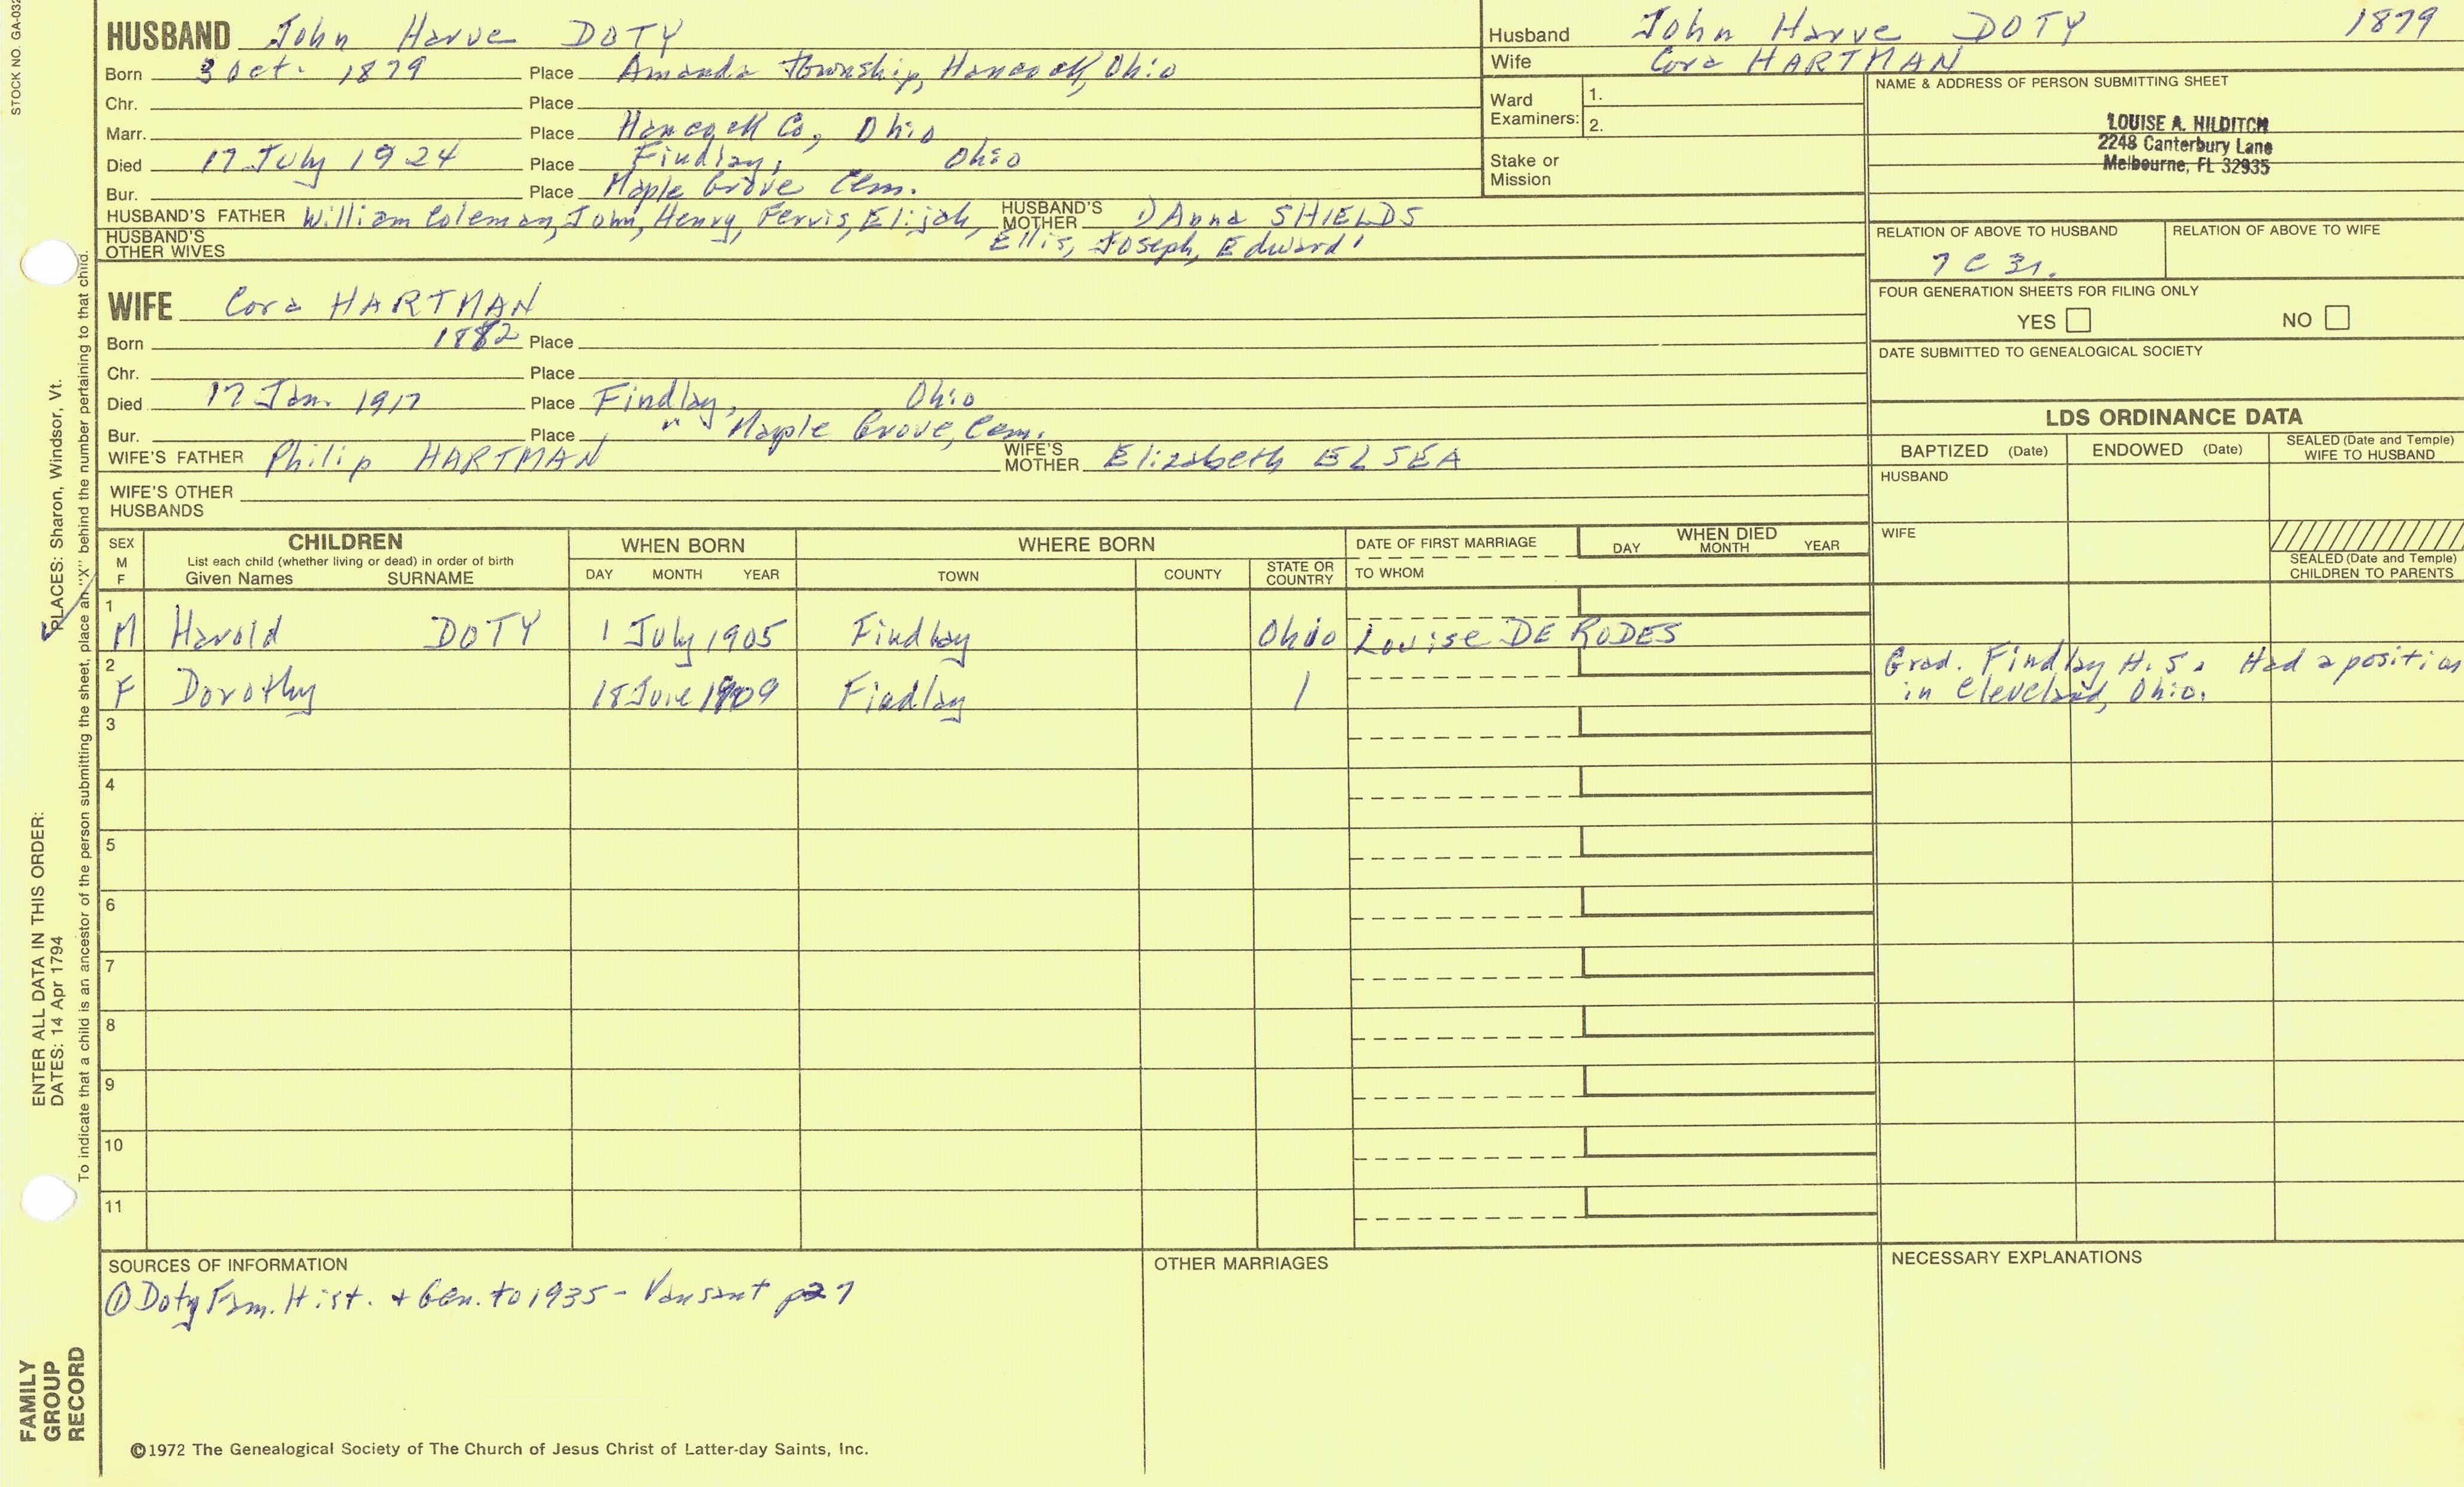 STOCK NO. GA-032
HUSBAND John Harve DOTY
Born 3 Oct. 1879 Place Amanda Township, Hancock, Ohio
Chr. Place
Marr. Place Hancock Co, Ohio
Died 17 July 1924 Place Findlay, Ohio
Bur. Place Maple Grove Cem.
HUSBAND'S FATHER William Coleman, John, Henry, Pervis, Elijah, HUSBAND'S MOTHER 1) Anna SHIELDS
HUSBAND'S OTHER WIVES Ellis, Joseph, Edward'
WIFE Cora HARTMAN
Born 1882 Place
Chr. Place
Died 17 Jan. 1917 Place Findlay, Ohio
Bur. Place " Maple Grove, Cem.
WIFE'S FATHER Philip HARTMAN WIFE'S MOTHER Elizabeth ELSEA
WIFE'S OTHER HUSBANDS
Husband John Harve DOTY 1879
Wife Cora HARTMAN
Ward Examiners: 1. 2.
Stake or Mission
NAME & ADDRESS OF PERSON SUBMITTING SHEET
LOUISE A. HILDITCH
2248 Canterbury Lane
Melbourne, FL 32935
RELATION OF ABOVE TO HUSBAND RELATION OF ABOVE TO WIFE
7 C 3r.
FOUR GENERATION SHEETS FOR FILING ONLY
YES NO
DATE SUBMITTED TO GENEALOGICAL SOCIETY
LDS ORDINANCE DATA
BAPTIZED (Date) ENDOWED (Date) SEALED (Date and Temple) WIFE TO HUSBAND
HUSBAND
WIFE
SEALED (Date and Temple) CHILDREN TO PARENTS
SEX M F
CHILDREN
List each child (whether living or dead) in order of birth
Given Names SURNAME
WHEN BORN
DAY MONTH YEAR
WHERE BORN
TOWN COUNTY STATE OR COUNTRY
DATE OF FIRST MARRIAGE
TO WHOM
WHEN DIED
DAY MONTH YEAR
1
M Harold DOTY 1 July 1905 Findlay Ohio Louise DE RODES
2
F Dorothy 18 June 1909 Findlay
Grad. Findlay H.S. Had a position
in Cleveland, Ohio.
3
4
5
6
7
8
9
10
11
SOURCES OF INFORMATION
① Doty Fam. Hist. + Gen. to 1935 - Vansant p27
OTHER MARRIAGES
NECESSARY EXPLANATIONS
©1972 The Genealogical Society of The Church of Jesus Christ of Latter-day Saints, Inc.
FAMILY
GROUP
RECORD
ENTER ALL DATA IN THIS ORDER:
DATES: 14 Apr 1794
PLACES: Sharon, Windsor, Vt.
To indicate that a child is an ancestor of the person submitting the sheet, place an "X" behind the number pertaining to that child.